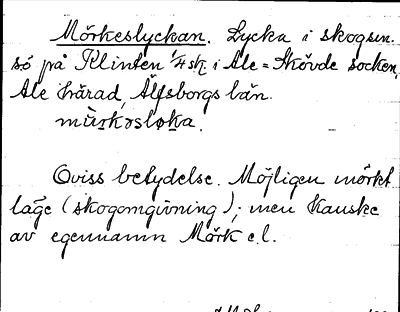 Mörkeslyckan. Lycka i skogsen.
sö på Klinten 1/4 sk i Ale = Skövde socken,
Ale härad, Älfsborgs län.
Oviss betydelse. Möjligen mörkt
läge (skogomgivning); men kanske
av egennamn Mörk e.l.